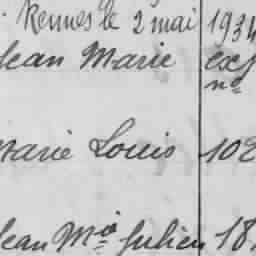 Rennes le 2 mai 1934
Jean Marie
nº
Marie Louis 102
Jean Mie Julien 18